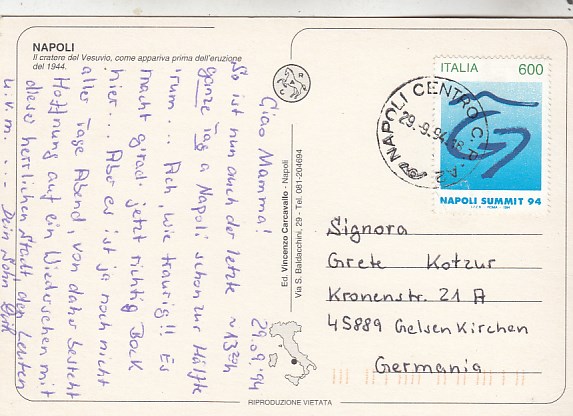 NAPOLI
Il cratere del Vesuvio, come appariva prima dell'eruzione
del 1944.
29.09.'94
~13²⁰h
Ciao Mamma!
So ist nun auch der letzte
ganze Tag a Napoli schon zur Hälfte
rum... Ach, wie traurig!! Es
macht g'rad jetzt richtig Bock
hier... Aber es ist ja noch nicht
aller Tage Abend, von daher besteht
Hoffnung auf ein Wiedersehen mit
dieser herrlichen Stadt, den Leuten
u.v.m. ... Dein Sohn
Ed. Vincenzo Carcavallo - Napoli
Via S. Baldacchini, 29 - Tel. 081-204694
ITALIA 600
NAPOLI SUMMIT 94
NAPOLI CENTRO
29.-9.94
Signora
Grete Kotzur
Kronenstr. 21 A
45889 Gelsenkirchen
Germania
RIPRODUZIONE VIETATA